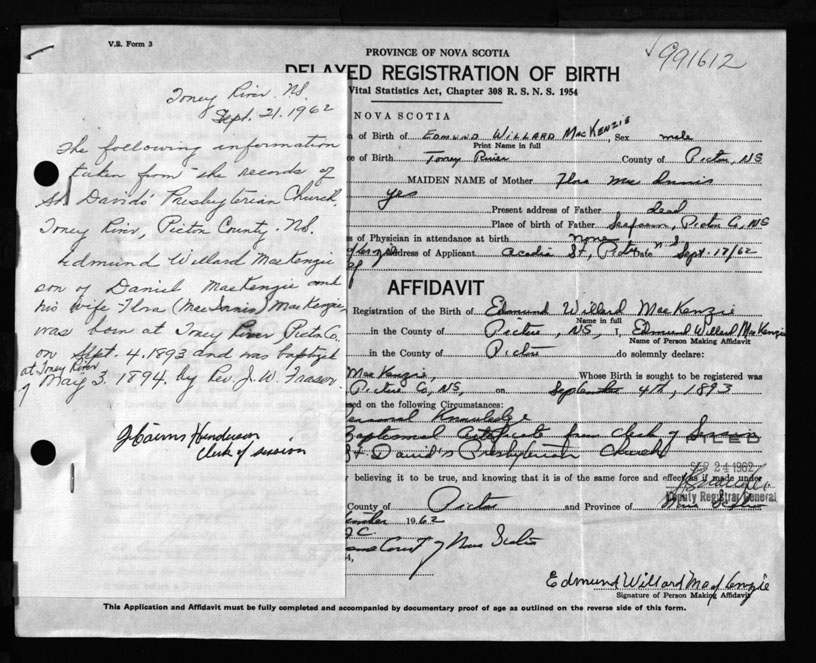 V.S. Form 3
991612
PROVINCE OF NOVA SCOTIA
DELAYED REGISTRATION OF BIRTH
Vital Statistics Act, Chapter 308 R. S. N. S. 1954
NOVA SCOTIA
Toney River. N.S.
Sept. 21. 1962
The following information
taken from the records of
St. David's Presbyterian Church,
Toney River, Pictou County. N.S.
Edmund Willard MacKenzie
son of Daniel MacKenzie and
his wife Flora (MacInnis) MacKenzie,
was born at Toney River, Pictou Co.
on Sept. 4. 1893 and was baptized
at Toney River
May 3. 1894. by Rev. J. W. Fraser.
J Cairns Henderson
Clerk of session
of Birth of Edmund Willard MacKenzie, Sex male
Print Name in full
of Birth Toney River County of Pictou, NS
MAIDEN NAME of Mother Flora Mac Innis
yes
Present address of Father dead
Place of birth of Father Seafoam, Pictou Co, NS
of Physician in attendance at birth none
Address of Applicant Acadia St, Pictou N.S. Date Sept. 17/62
AFFIDAVIT
Registration of the Birth of Edmund Willard MacKenzie
Name in full
in the County of Pictou, NS, I, Edmund Willard MacKenzie
Name of Person Making Affidavit
in the County of Pictou do solemnly declare:
MacKenzie, Whose Birth is sought to be registered was
Pictou Co, NS, on September 4th, 1893
on the following Circumstances:
Personal Knowledge
Baptismal Certificate from Clerk of Session
St David's Presbyterian Church
FILED
SEP 24 1962
believing it to be true, and knowing that it is of the same force and effect as if made under
Deputy Registrar General
County of Pictou and Province of Nova Scotia
1962
Court of Nova Scotia
Edmund Willard MacKenzie
Signature of Person Making Affidavit
This Application and Affidavit must be fully completed and accompanied by documentary proof of age as outlined on the reverse side of this form.